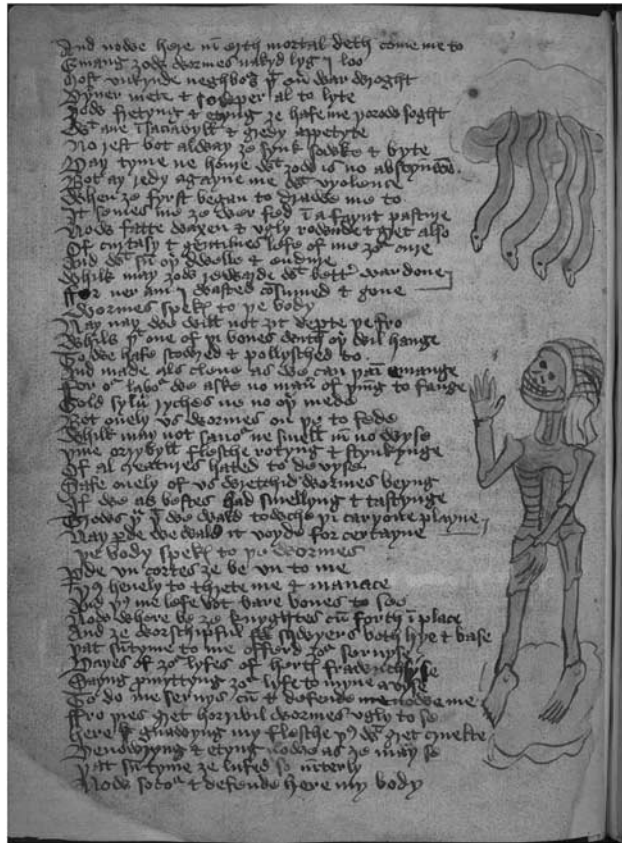 And nowe here in erth mortal deth come me to
Emang ȝow wormes nakyd lyg I loo
Most vnkynde neghbors þt euer war wroght
Dyner mete & sowper al to lyte
Now fretyng & etyng ȝe hafe me þorow soght
Wt ane insaciabyll & gredy appetyte
No rest bot alway ȝe synk sowke & byte
Day tyme ne houre wt ȝow is no abstynence
Bot ay redy agayne me wt vyolence
When ȝe fyrst began to drawe me to
It semes me ȝe wer fed in a faynt pasture
Now fatte waxen & vgly rownde & gret also
Of curtasy & gentilnes lefe of me ȝor cure
And wt sum oþer dwelle & endure
Whilk may ȝow rewarde wt better wardone
ffor ner am I wasted consumed & gone
Wormes spekes to þe body
Nay nay we will not ȝit departe þe fro
Whils þt one of þi bones with oþer wil hange
To we hafe scowred & pollysched to
And made als clene as we can þaim emange
For or labor we aske no maner of þing to fange
Gold syluer ryches ne no oþer mede
Bot onely vs wormes on þe to fede
Whilk may not sauour ne smell in no wyse
þine orrybyll flesche rotyng & stynkynge
Of al creatures hated to devyse
Safe onely of vs wretchid wormes beyng
If we as bestes had smellyng & tastynge
Trows þu þt we wald towche þi caryone playne
Nay parde we wald it voyde for certayne
þe body spekes to þe wormes
Parde vncortes ȝe be vn to me
þus heuely to threte me & manace
And þus me lefe bot bare bones to see
Now where be ȝe knyghtes cum forth in place
And ȝe worschipful sqwyers both hye & base
þat sumtyme to me offerd ȝor seruyse
Dayes of ȝor lyfes of hertes frawnchyse
Sayng promyttyng ȝor lyfe to myne avyse
To do me seruys cum & defende nowe me
ffro þies gret horribil wormes vgly to se
Here gnawyng my flesche þus wt gret cruelte
Devowryng & etyng nowe as ȝe may se
þat sumtyme ȝe lufed so interly
Now socour & defende here my body